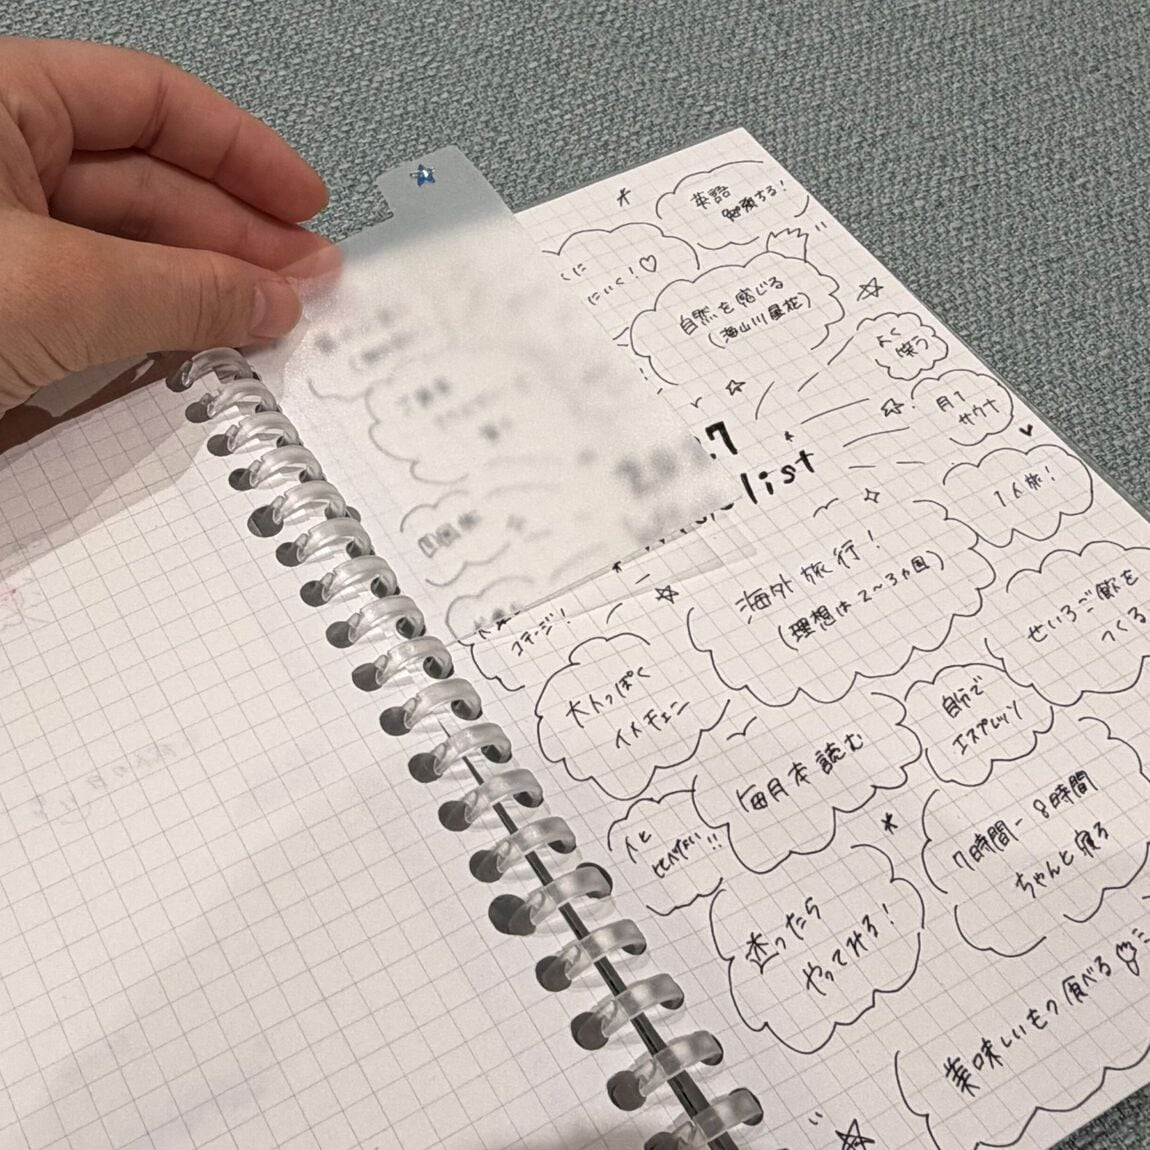 英語
勉強する!
くに
にいく!♡
自然を感じる
(海山川星花)
よく
笑う
月1
サウナ
list
1人旅!
海外旅行!
(理想は2〜3ヵ国)
せいろご飯を
つくる
コテージ!
大人っぽく
イメチェン
自分で
エスプレッソ
毎月本読む
人と
比べない!!
7時間-8時間
ちゃんと寝る
迷ったら
やってみる!
美味しいもの食べる